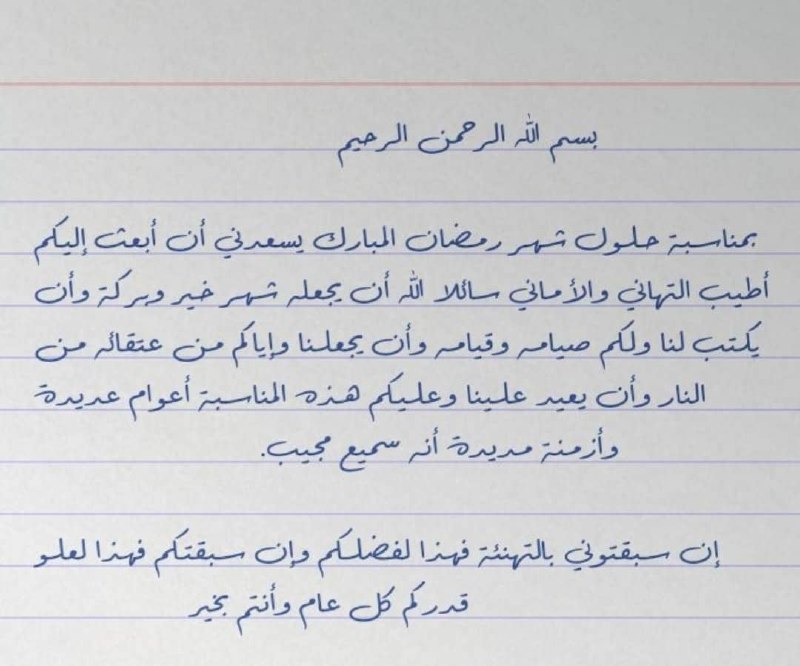 بسم الله الرحمن الرحيم
بمناسبة حلول شهر رمضان المبارك يسعدني أن أبعث إليكم
أطيب التهاني والأماني سائلا الله أن يجعله شهر خير وبركة وأن
يكتب لنا ولكم صيامه وقيامه وأن يجعلنا وإياكم من عتقائه من
النار وأن يعيد علينا وعليكم هذه المناسبة أعوام عديدة
وأزمنة مديدة أنه سميع مجيب.
إن سبقتوني بالتهنئة فهذا لفضلكم وإن سبقتكم فهذا لعلو
قدركم كل عام وأنتم بخير